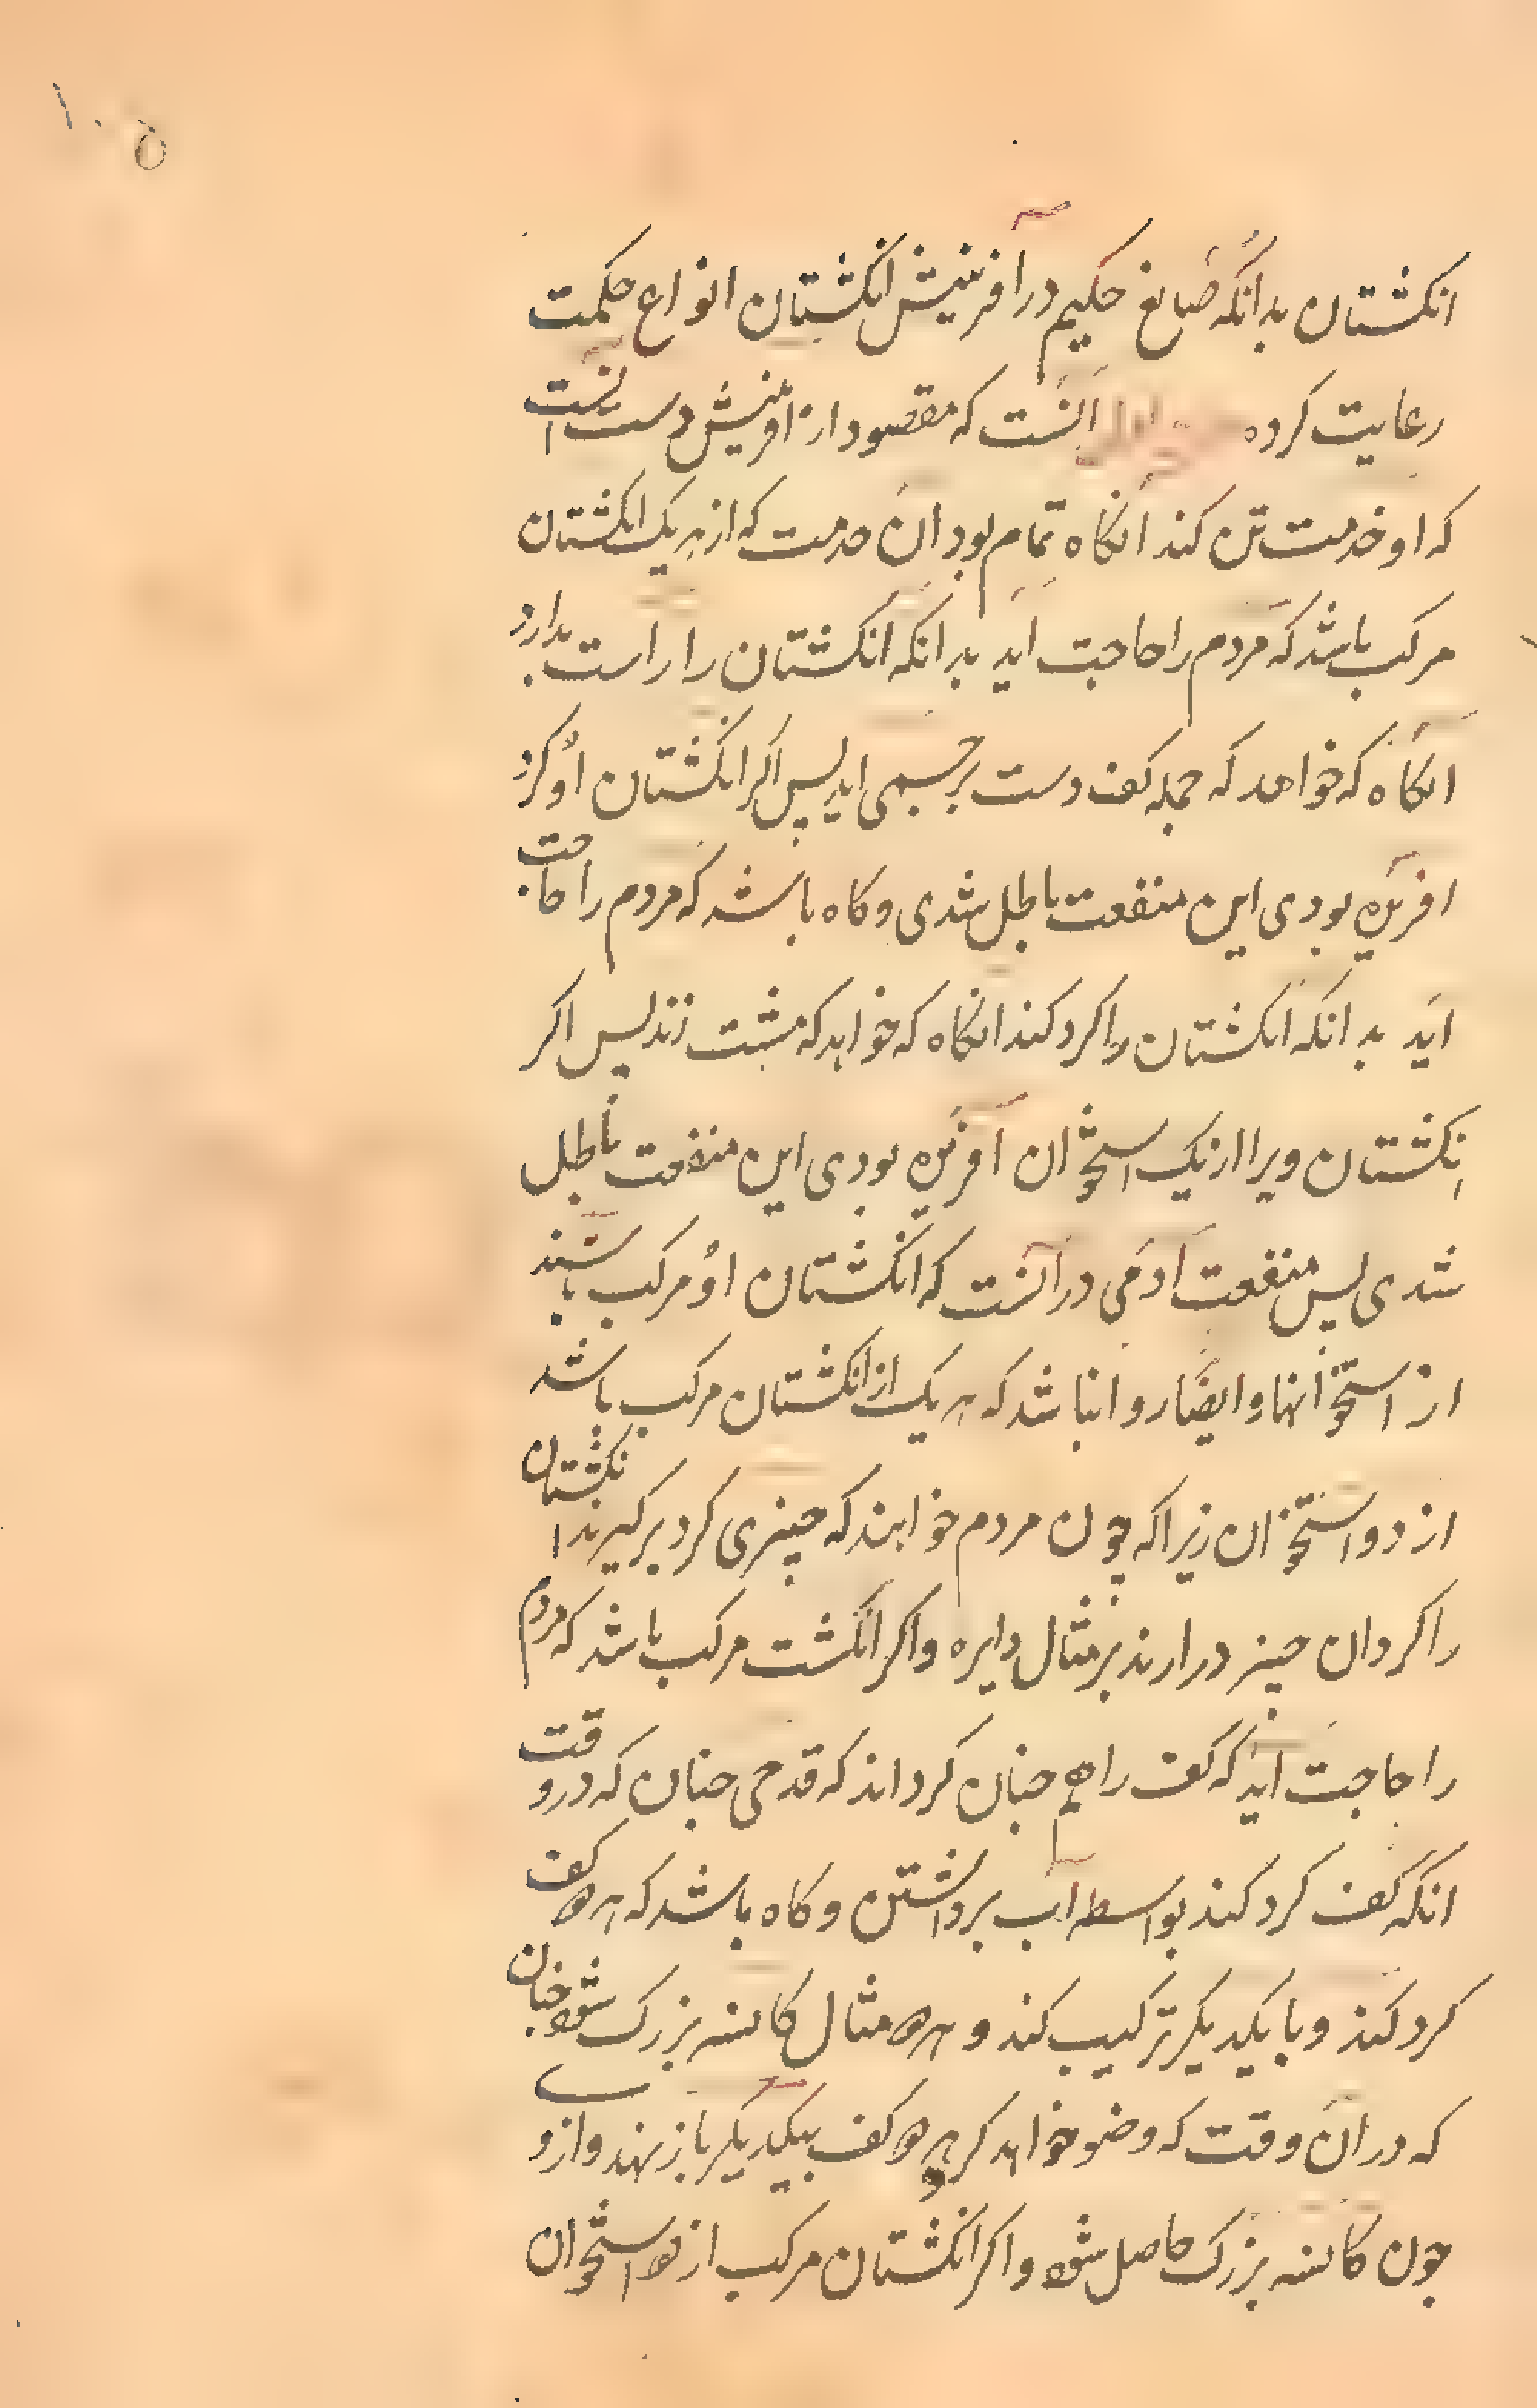 ۱۰۵
انکشتان بدانکه صانع حکیم در آفرینش انکشتان انواع حکمت
رعایت کرده اول انست که مقصود از افرینش دست انست
که او خدمت تن کند انکاه تمام بود ان خدمت که از هر یک انکشتان
مرکب باشد که مردم را حاجت اید بدانکه انکشتان را راست بدارد
انکاه که خواهد که جمله کف دست بر جسمی اید پس اکر انکشتان او کرد
افریده بودی این منفعت باطل شدی و کاه باشد که مردم را حاجت
اید بدانکه انکشتان را کرد کند انکاه که خواهد که مشت زند پس اکر
انکشتان ویرا از یک استخوان آفریده بودی این منفعت باطل
شدی پس منفعت ادمی در آنست که انکشتان او مرکب باشند
از استخوانها و ایضا روا نباشد که هر یک از انکشتان مرکب باشد
از دو استخوان زیرا که چون مردم خواهند که چیزی کرد بر کیرند انکشتان
را کرد ان چیز در ارند بر مثال دایره و اکر انکشت مرکب باشد که مردم
را حاجت اید که کف را هم چنان کرداند که قدحی چنان که در وقت
انکه کف کرد کند بواسطه آب برداشتن و کاه باشد که هر دو کف
کرد کند و با یکدیکر ترکیب کند و هر دو مثال کاسه بزرک شود چنان
که در ان وقت که وضو خواهد کرد هر دو کف بیکدیکر باز نهد و ازو
چون کاسه بزرک حاصل شود و اکر انکشتان مرکب از دو استخوان